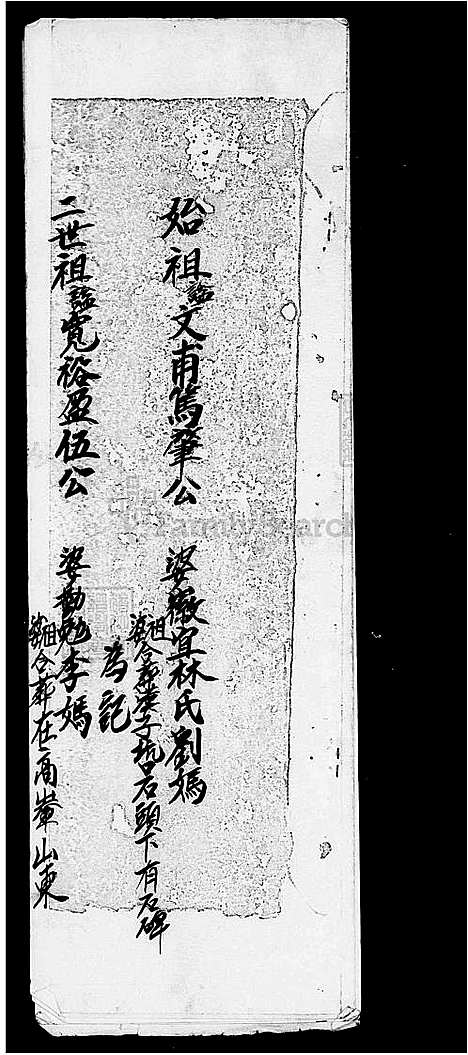 始祖謚文甫篤肇公 婆徽宜林氏劉媽
祖婆合葬葉子坑石頭下有石碑
為記
二世祖謚寬裕盈伍公 婆勤勉李媽
祖婆合葬在高輋山東
FamilySearch